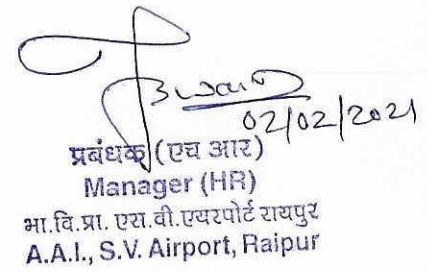 02/02/2021
प्रबंधक (एच आर)
Manager (HR)
भा.वि.प्रा. एस.वी.एयरपोर्ट रायपुर
A.A.I., S.V. Airport, Raipur